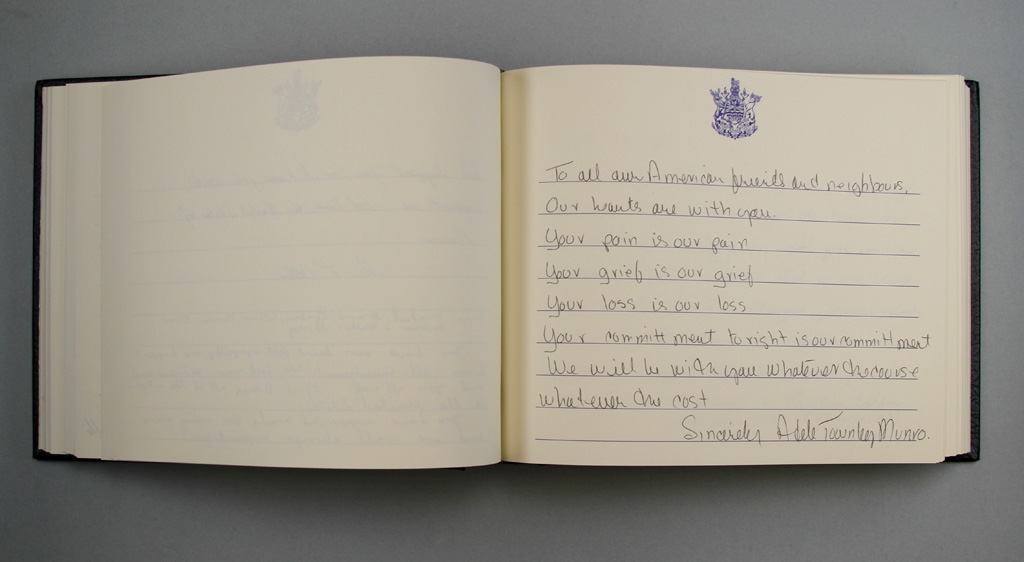 To all our American friends and neighbours,
Our hearts are with you.
Your pain is our pain
Your grief is our grief
Your loss is our loss
Your committment to right is our committment
We will be with you whatever the course
whatever the cost
Sincerely Adele Townley Munro.